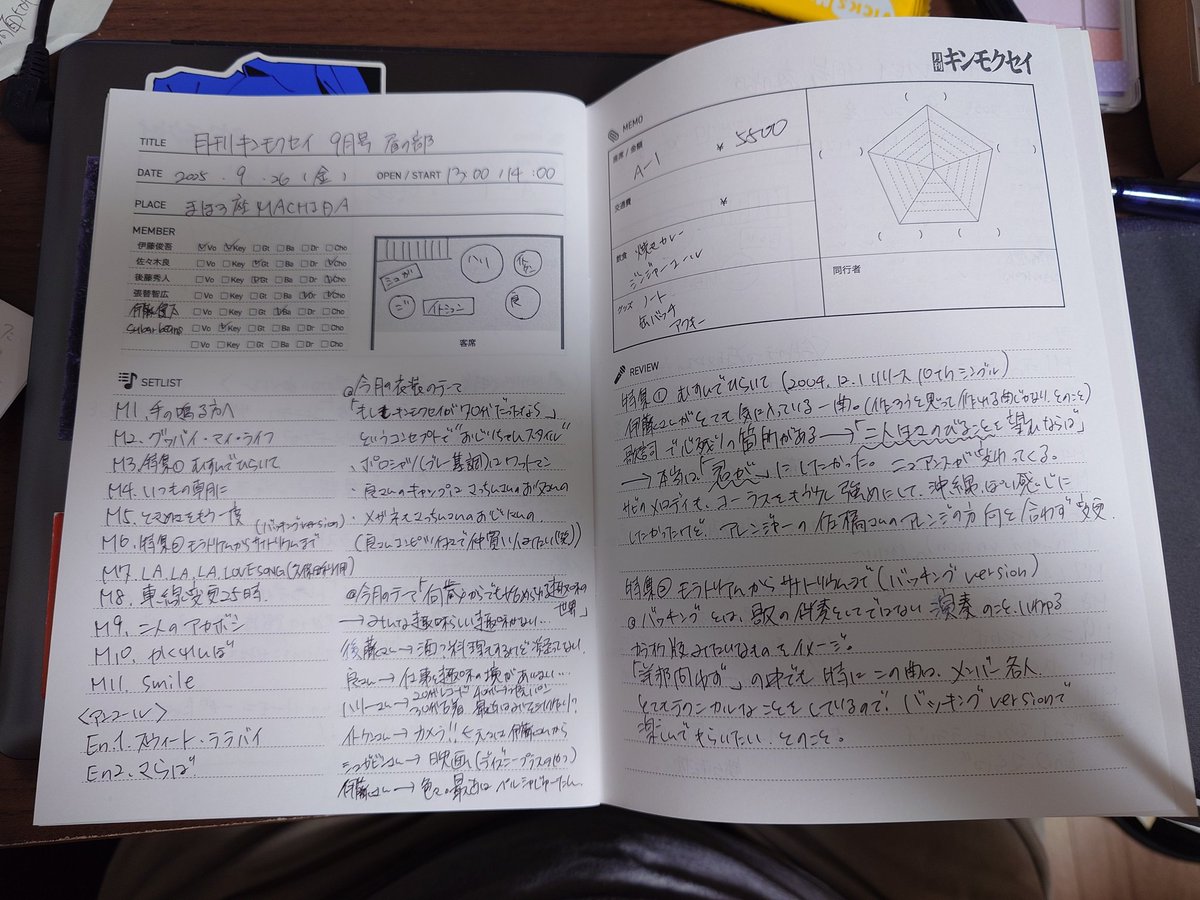 TITLE 月刊キンモクセイ 9月号 昼の部
DATE 2025 . 9 . 26 (金) OPEN / START 13:00 / 14:00
PLACE まほろ座 MACHIDA
MEMBER
伊藤俊吾 Vo Key Gt Ba Dr Cho
佐々木良 Vo Key Gt Ba Dr Cho
後藤秀人 Vo Key Gt Ba Dr Cho
張替智広 Vo Key Gt Ba Dr Cho
伊藤健太 Vo Key Gt Ba Dr Cho
Sugar beans Vo Key Gt Ba Dr Cho
Vo Key Gt Ba Dr Cho
シュガ
ハリ
イトケン
ゴ
イトシュン
良
客席
SETLIST
M1. 手の鳴る方へ
M2. グッバイ・マイ・ライフ
M3. 特集① むすんでひらいて
M4. いつもの朝に
M5. ときめきをもう一度
M6. 特集② モラトリアムからサナトリウムまで (バッキングversion)
M7. LA.LA.LA LOVE SONG (久保田利伸)
M8. 車線変更25時
M9. 二人のアカボシ
M10. かくれんぼ
M11. smile
<アンコール>
En1. スウィート・ララバイ
En2. さらば
◎今月の衣装のテーマ
「もしもキンモクセイが70才だったなら」
というコンセプトで"おじいちゃんスタイル"
・ポロシャツ(グレー基調)はワークマン
・メガネは
(良さん 仲買い人みたい(笑))
◎今月のテーマ「何歳からでも始められる趣味の世界」
→みんな趣味らしい趣味がない…
後藤さん→酒?料理もするけど凝ってない。
良さん→仕事と趣味の境があいまい…
ハリーさん→20代レコード 40代
30代古着 最近は
イトケンさん→カメラ!!
シュガビンさん→映画(ディズニープラス
伊藤さん→色々。最近は
月刊 キンモクセイ
MEMO
座席 / 金額 A-1 ¥ 5500
交通費 ¥
飲食 焼きカレー
ジンジャーエール
グッズ ノート
缶バッチ
アクキー
( )
( ) ( )
( ) ( )
同行者
REVIEW
特集① むすんでひらいて (2004.12.1リリース 10thシングル)
伊藤さんがとても気に入っている一曲。(作ろうと思って作れる曲じゃない、とのこと)
歌詞で心残りの箇所がある→「二人はこのびることを望むならば」
→本当は「君が」にしたかった。ニュアンスが変わってくる。
サビのメロディも、コーラスをもう少し強めにして、沖縄っぽい感じに
したかったけど、アレンジャーの佐橋さんのアレンジの方向と合わず変更。
特集② モラトリアムからサナトリウムまで (バッキングversion)
◎バッキングとは、歌の伴奏としてではない演奏のこと。いわゆる
カラオケ版みたいなものをイメージ。
「 」の中でも特にこの曲は、メンバー各人
とてもテクニカルなことをしているので、バッキングversionで
楽しんでもらいたい、とのこと。